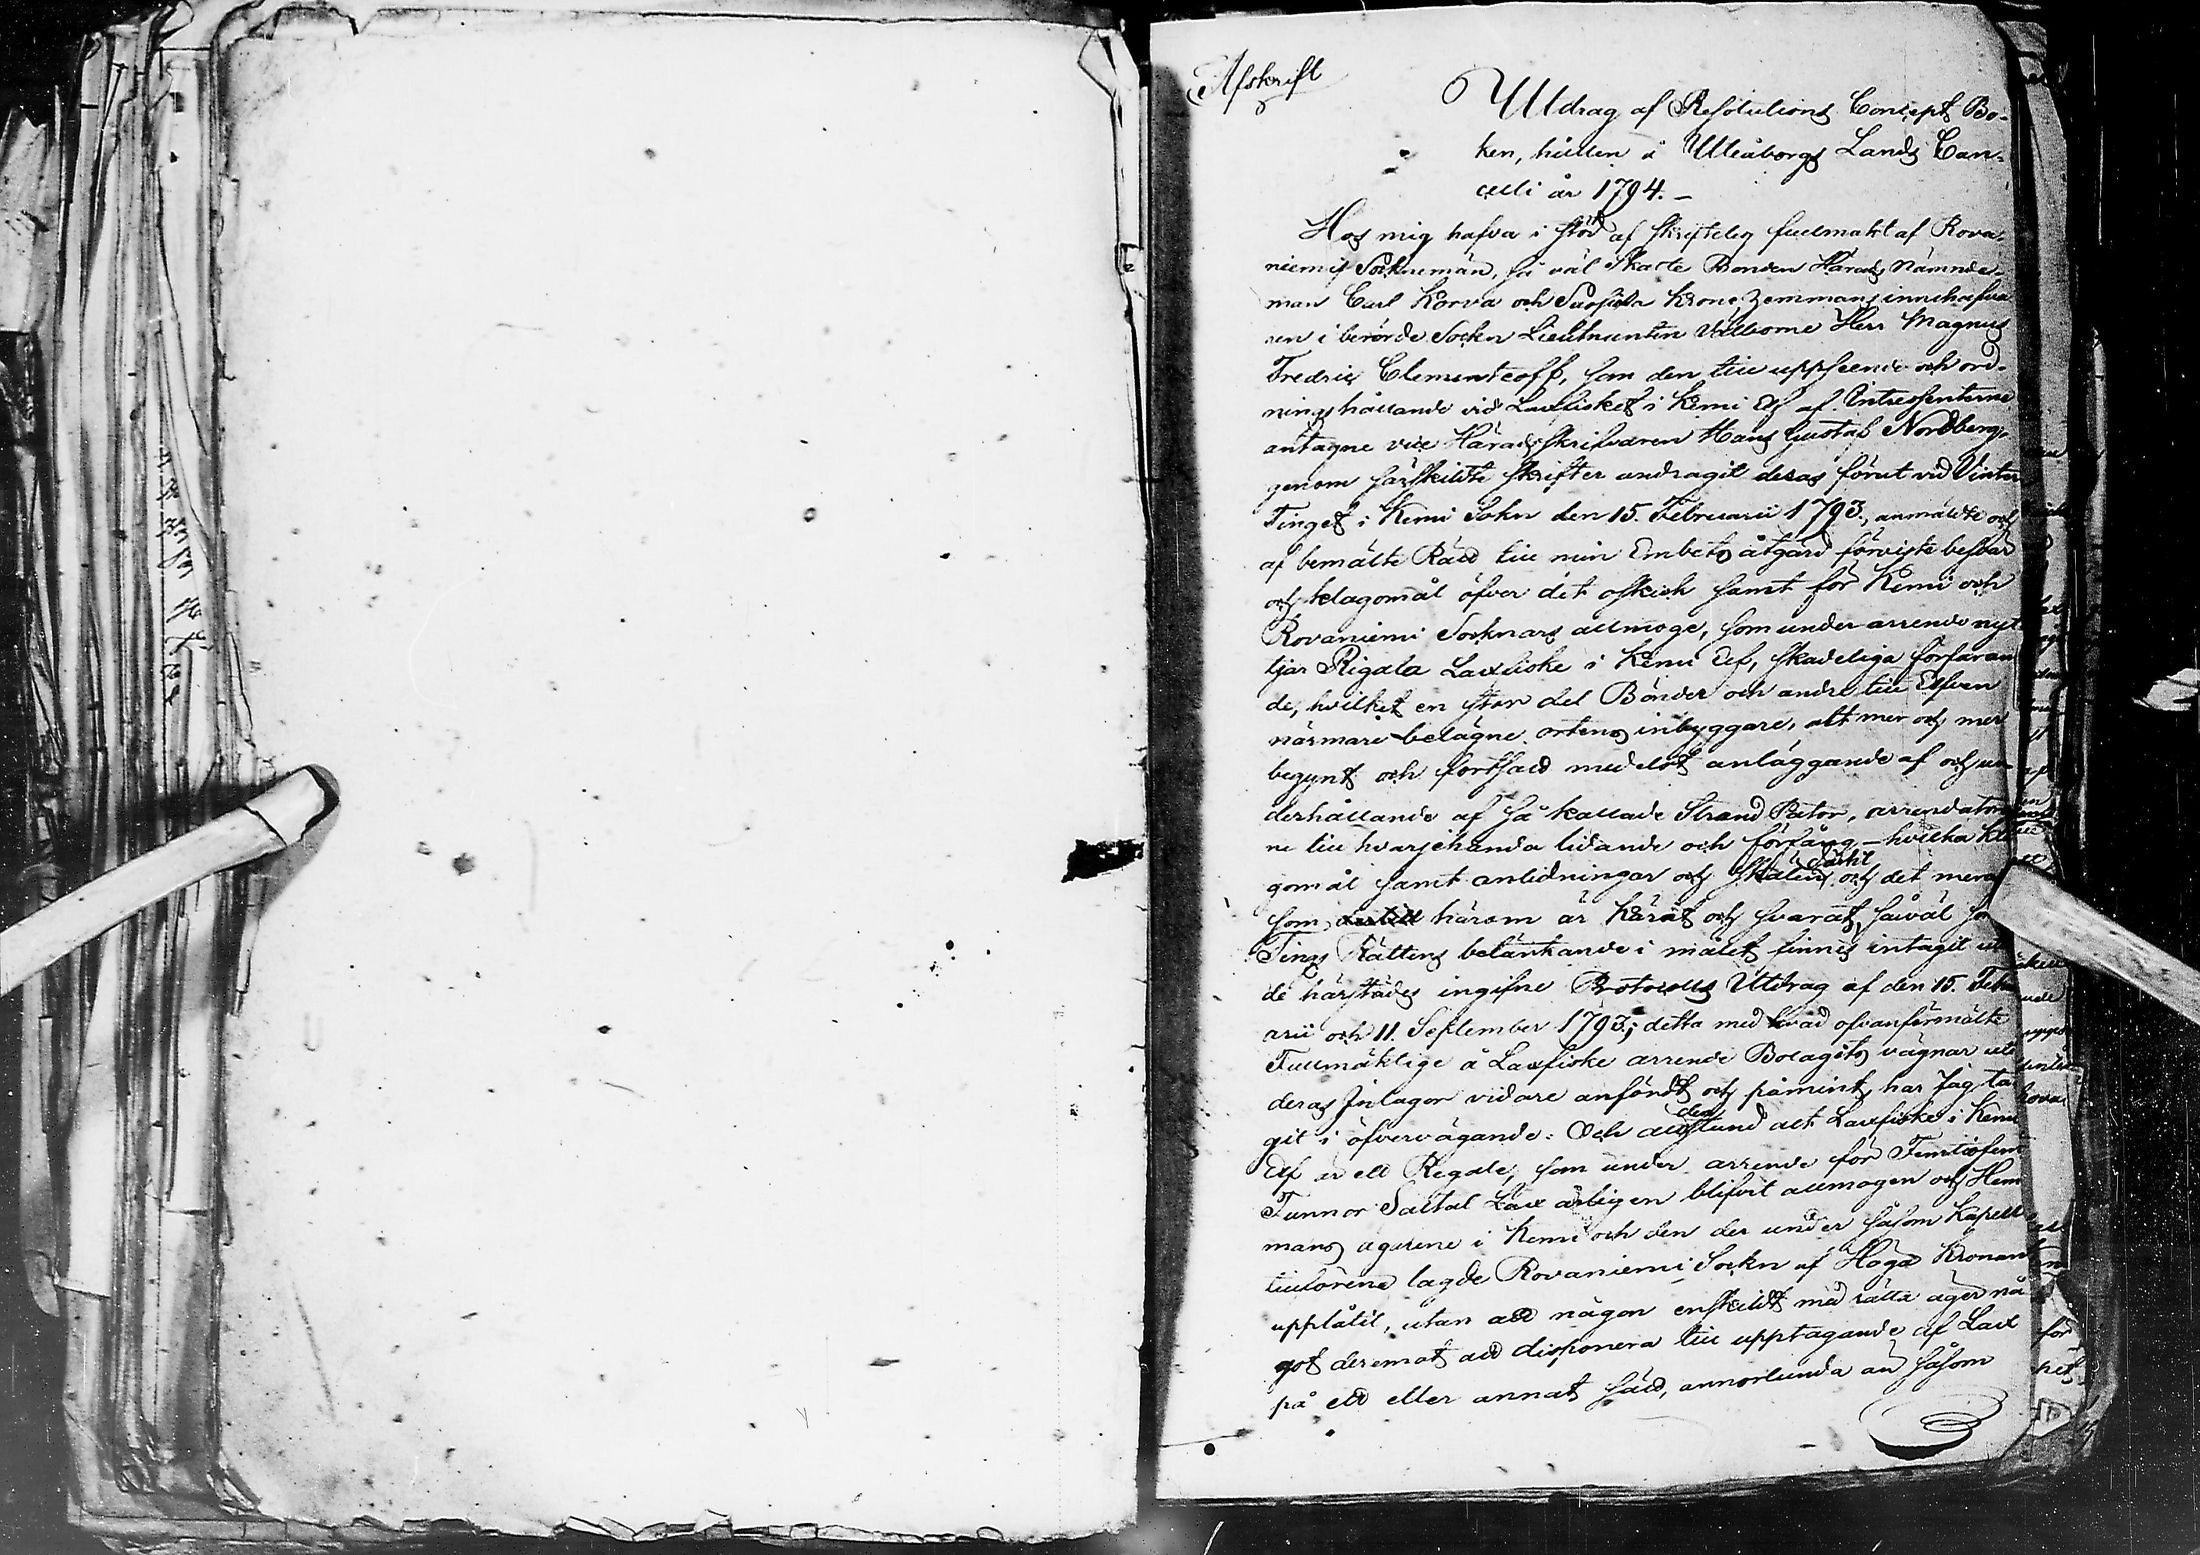 Afskrift
Utdrag af Resolutions Concept Bo-
ken, hållen å Uleåborgs Lands Can-
celli år 1794.
Hos mig hafva i stöd af skriftelig fullmakt af Rova-
niemi Socknemän, så väl Skatte Bonden Härads Nämnde-
man Carl Korva och Krono Hemmans innehafva
ren i berörde Sockn Lieutnanten Välborne Herr Magnus
Fredric Clementeoff, som den till uppseende och ord-
nings hållande vid Laxfisket i Kemi Elf af Intressenterne
antagne vice Häradsskrifvaren Hans Gustaf Nordberg,
genom särskildte skrifter andragit deras förut vid Vinter
Tinget i Kemi Sokn den 15. Februarii 1793, anmälte och
af bemälte Rätt till min Embets åtgärd förviste besvär
och klagomål öfver det oskick samt för Kemi och
Rovaniemi Socknars allmoge, som under arrende nyt
tjar Rigala Laxfiske i Kemi Elf, skadeliga förfaran
de, hvilket en stor del Bönder och andre till Elfven
närmare belägne ortens inbyggare, allt mer och mer
begynt och fortfard medelst anläggande af och un
derhållande af så kallade Strand Pator, arrendatorer
ne till hvarjehanda lidande och förfång – hvilka kla
gomål samt anledningar och skälen därtil och det mera
som härom är kärat och svarat, såväl som
Tings Rättens betänkande i målet finnes intagit uti
de härstädes ingifne Protocolls Utdrag af den 15. Febru
arii och 11. September 1793; detta med hvad ofvanförmälte
Fullmäktige å Laxfiske arrende Bolagets vägnar uti
deras Inlagor vidare anfördt och påmint, har Jag ta
git i öfvervägande: Och den stund att Laxfiske i Kemi
Elf är ett Regale, som under arrende för Femtiofem
Tunnor Saltad Lax årligen blifvit allmogen och Hem
mans ägarene i Kemi och den der under såsom Kapell
tillförene lagde Rovaniemi Sockn af Höga Kronan
upplåtit, utan att någon enskildt med rätta äger nå
got deremot att disponera till upptagande af Lax
på ett eller annat sätt, annorlunda än såsom